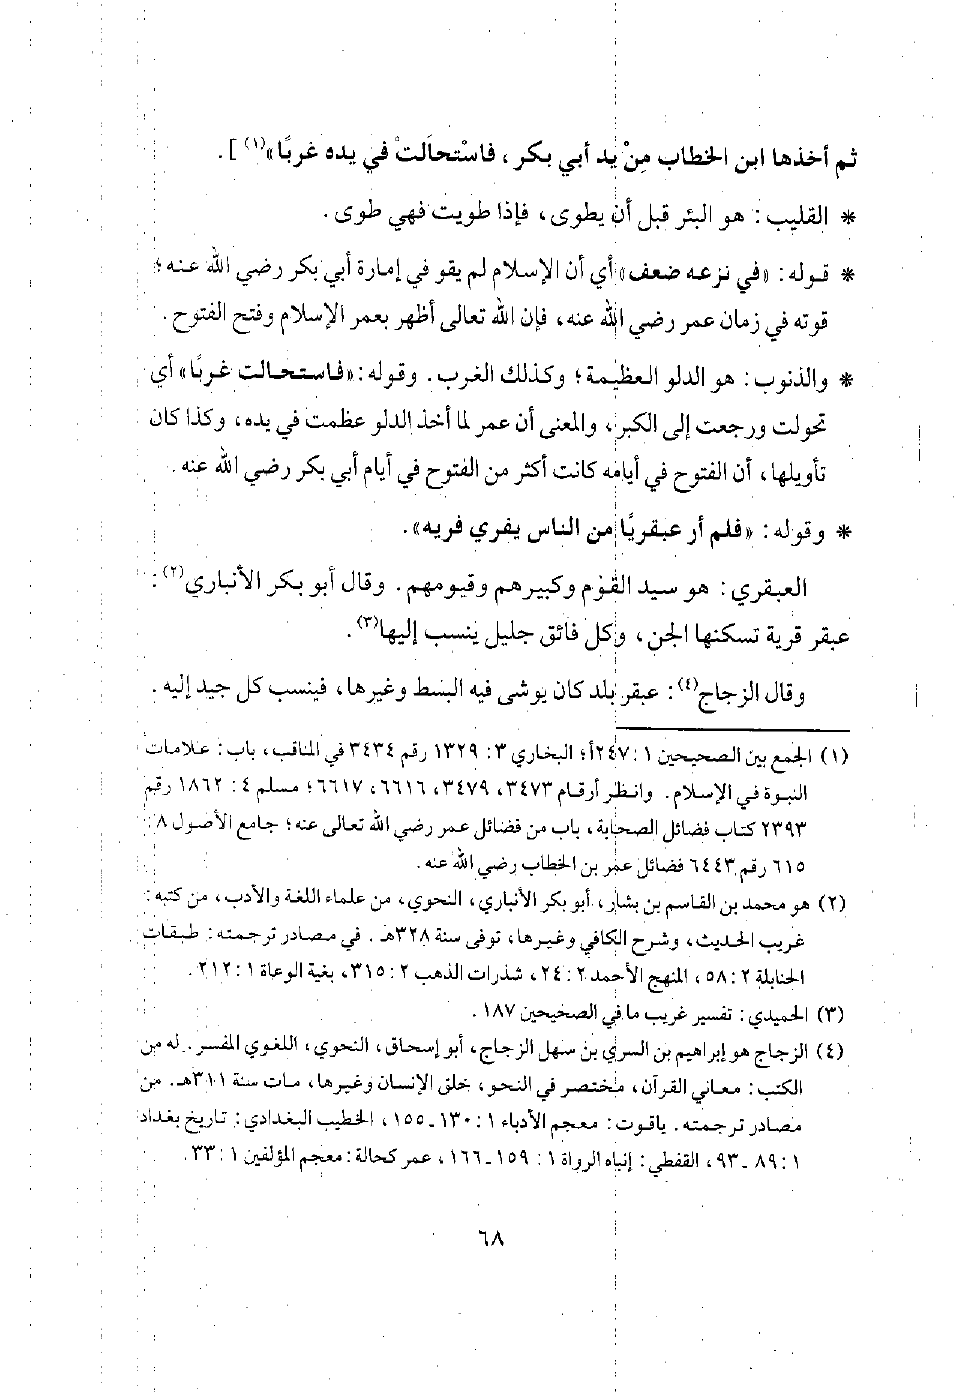 ثم أخذها ابن الخطاب مِنْ يد أبي بكر، فاسْتحالَتْ في يده غربًا»(١)].
* القليب: هو البئر قبل أن يطوى، فإذا طويت فهي طوى.
* قوله: «في نزعه ضعف» أي أن الإسلام لم يقو في إمارة أبي بكر رضي الله عنه؛
قوته في زمان عمر رضي الله عنه، فإن الله تعالى أظهر بعمر الإسلام وفتح الفتوح.
* والذنوب: هو الدلو العظيمة؛ وكذلك الغرب. وقوله: «فاستحالت غربًا» أي
تحولت ورجعت إلى الكبر، والمعنى أن عمر لما أخذ الدلو عظمت في يده، وكذا كان
تأويلها، أن الفتوح في أيامه كانت أكثر من الفتوح في أيام أبي بكر رضي الله عنه.
* وقوله: «فلم أر عبقريًا من الناس يفري فريه».
العبقري: هو سيد القوم وكبيرهم وقيومهم. وقال أبو بكر الأنباري(٢):
عبقر قرية تسكنها الجن، وكل فائق جليل ينسب إليها(٣).
وقال الزجاج(٤): عبقر بلد كان يوشى فيه البسط وغيرها، فينسب كل جيد إليه.
(١) الجمع بين الصحيحين ١: ٢٤٧أ؛ البخاري ٣: ١٣٢٩ رقم ٣٤٣٤ في المناقب، باب: علامات
النبوة في الإسلام. وانظر أرقام ٣٤٧٣، ٣٤٧٩، ٦٦١٦، ٦٦١٧؛ مسلم ٤: ١٨٦٢ رقم
٢٣٩٣ كتاب فضائل الصحابة، باب من فضائل عمر رضي الله تعالى عنه؛ جامع الأصول ٨:
٦١٥ رقم ٦٤٤٣ فضائل عمر بن الخطاب رضي الله عنه.
(٢) هو محمد بن القاسم بن بشار، أبو بكر الأنباري، النحوي، من علماء اللغة والأدب، من كتبه:
غريب الحديث، وشرح الكافي وغيرها، توفى سنة ٣٢٨هـ. في مصادر ترجمته: طبقات
الحنابلة ٢: ٥٨، المنهج الأحمد ٢: ٢٤، شذرات الذهب ٢: ٣١٥، بغية الوعاة ١: ٢١٢.
(٣) الحميدي: تفسير غريب ما في الصحيحين ١٨٧.
(٤) الزجاج هو إبراهيم بن السري بن سهل الزجاج، أبو إسحاق، النحوي، اللغوي المفسر. له من
الكتب: معاني القرآن، مختصر في النحو، خلق الإنسان وغيرها، مات سنة ٣١١هـ. من
مصادر ترجمته. ياقوت: معجم الأدباء ١: ١٣٠ـ١٥٥، الخطيب البغدادي: تاريخ بغداد
١: ٨٩ـ٩٣، القفطي: إنباه الرواة ١: ١٥٩ـ١٦٦، عمر كحالة: معجم المؤلفين ١: ٣٣.
٦٨